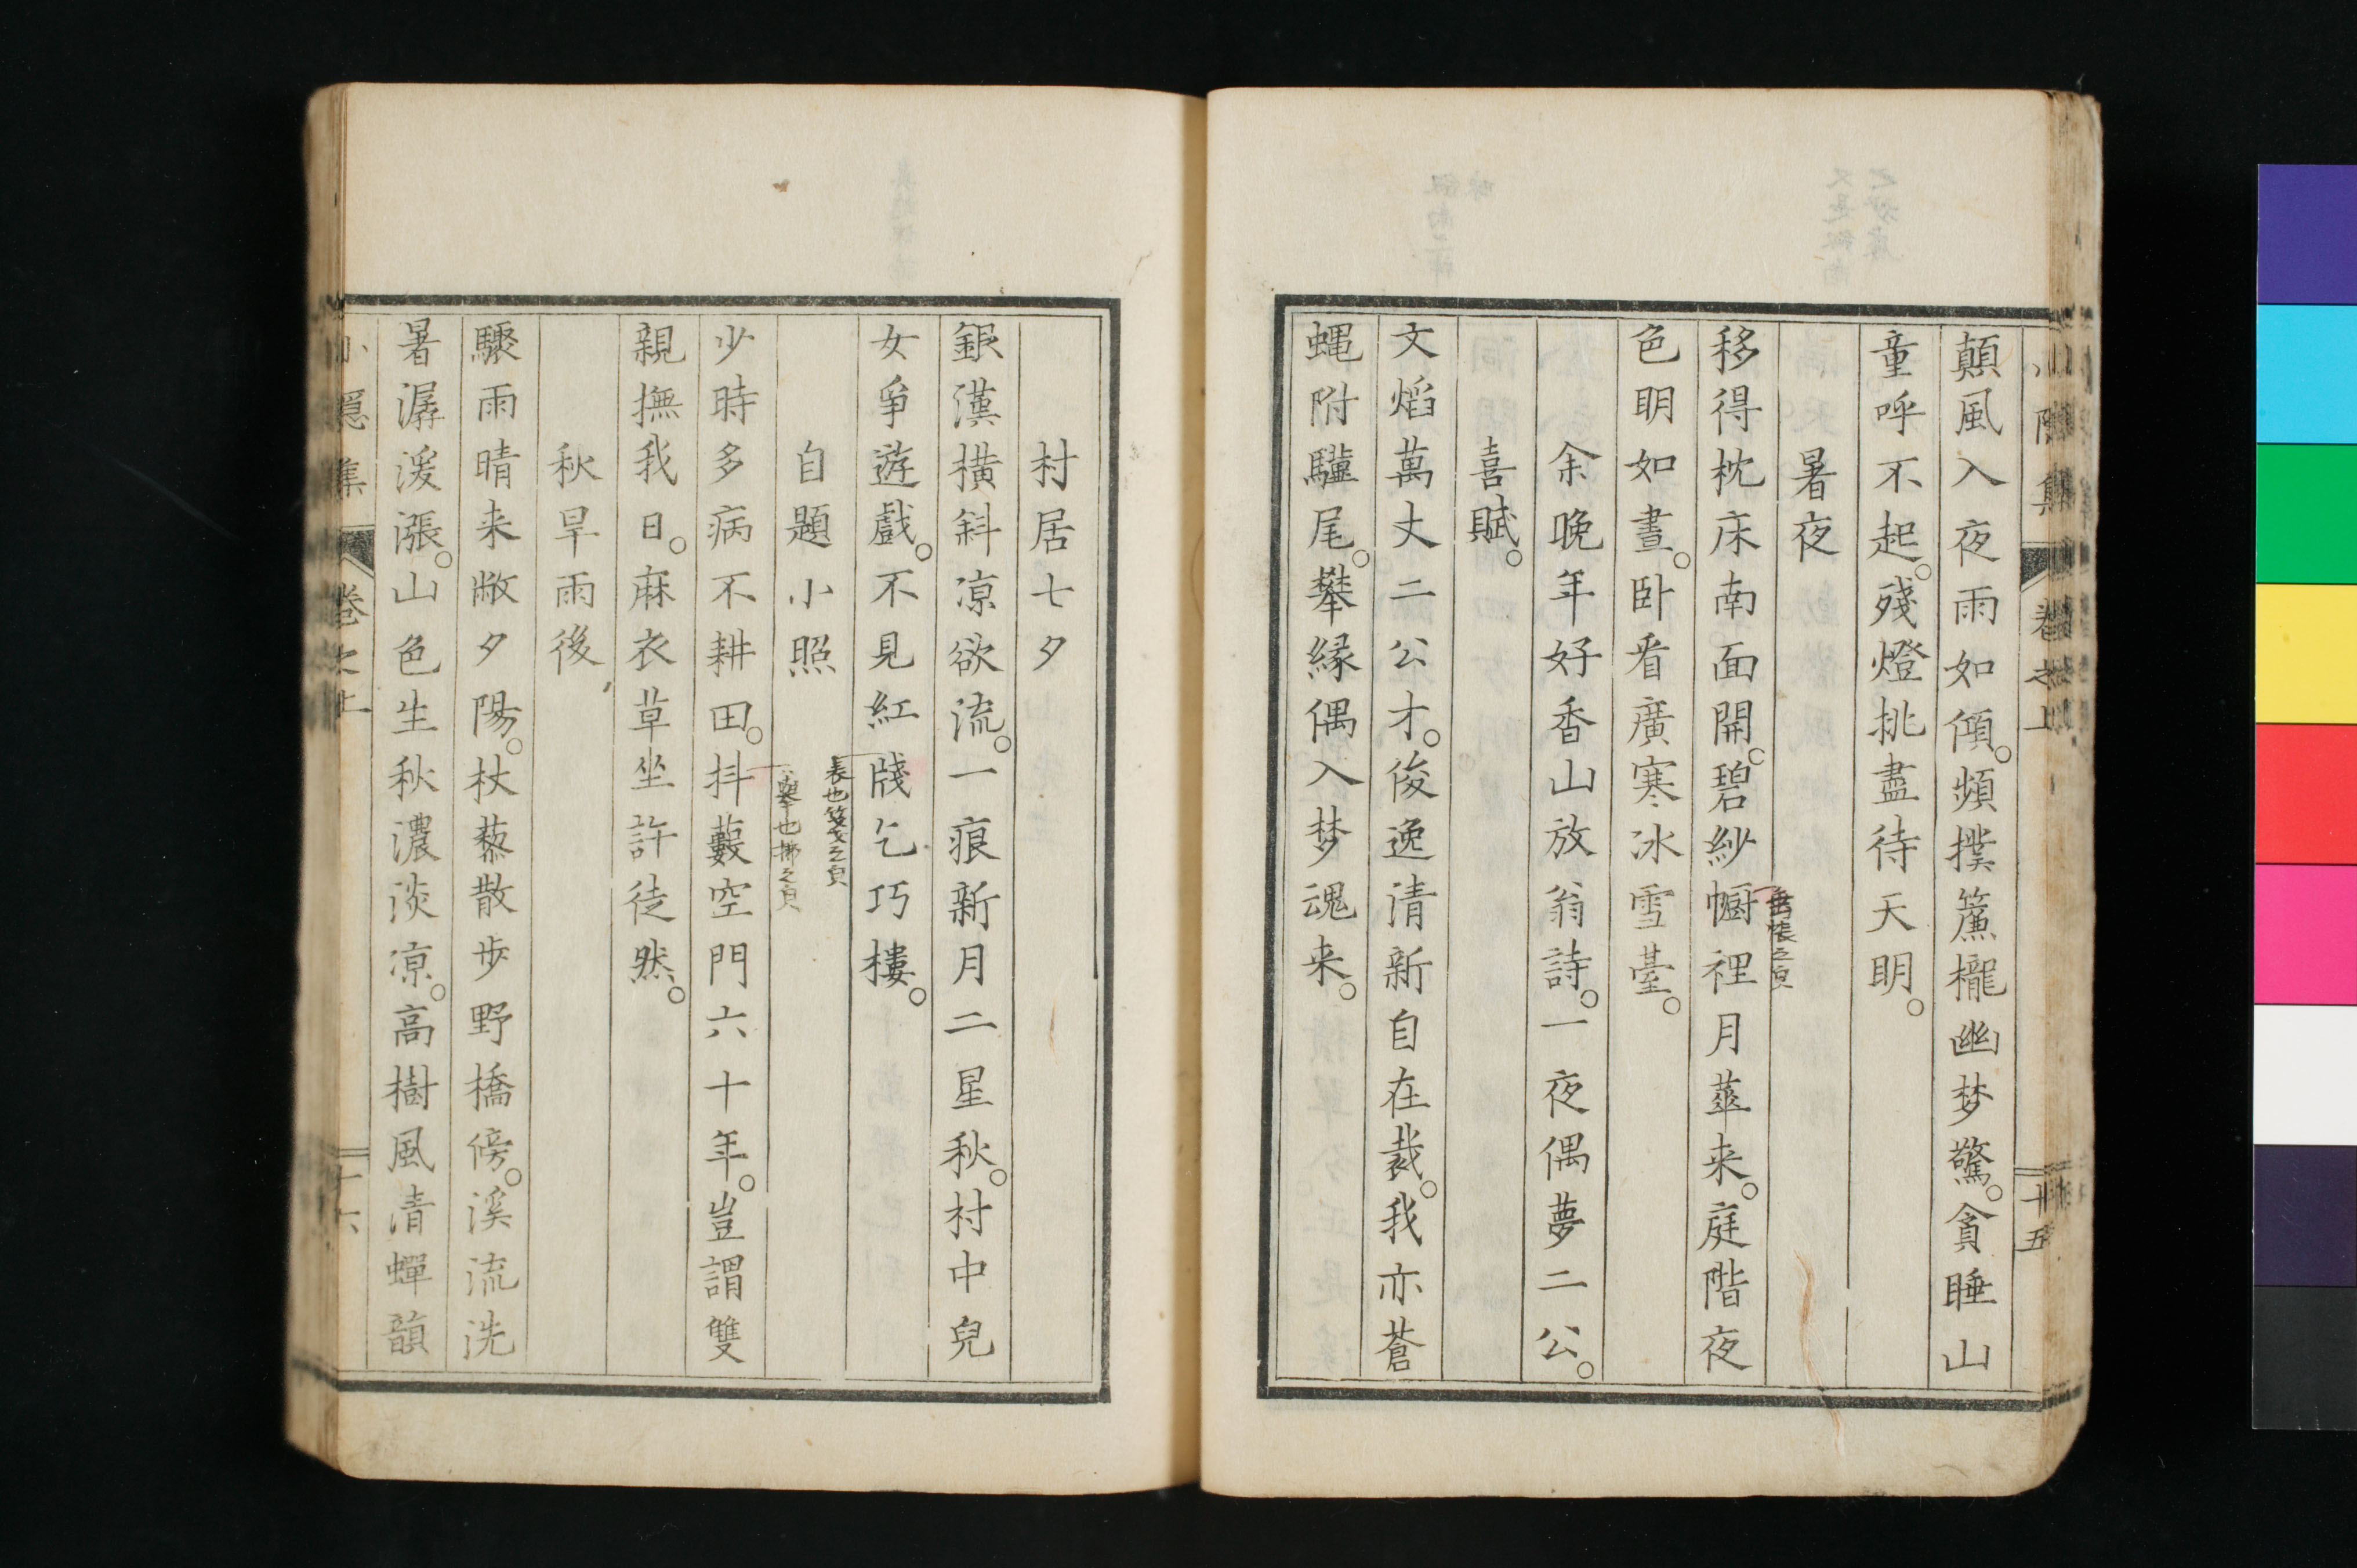 小隱集 卷之上 十五
顛風入夜雨如傾。頻撲簾櫳幽梦驚。貪睡山
童呼不起。殘燈挑盡待天明。
暑夜
移得枕床南面開。碧紗幮裡月莚来。庭階夜
色明如晝。卧看廣寒冰雪臺。
余晚年好香山放翁詩。一夜偶夢二公。
喜賦。
文焰萬丈二公才。俊逸清新自在裁。我亦蒼
蝿附驥尾。攀縁偶入梦魂来。
村居七夕
銀漢横斜凉欲流。一痕新月二星秋。村中兒
女爭遊戲。不見紅牋乞巧樓。
自題小照
少時多病不耕田。抖藪空門六十年。豈謂雙
親撫我日。麻衣草坐許徒然。
秋旱雨後
驟雨晴来敝夕陽。杖藜散歩野橋傍。溪流洗
暑潺湲漲。山色生秋濃淡凉。高樹風清蟬韻
小隱集 卷之上 十六